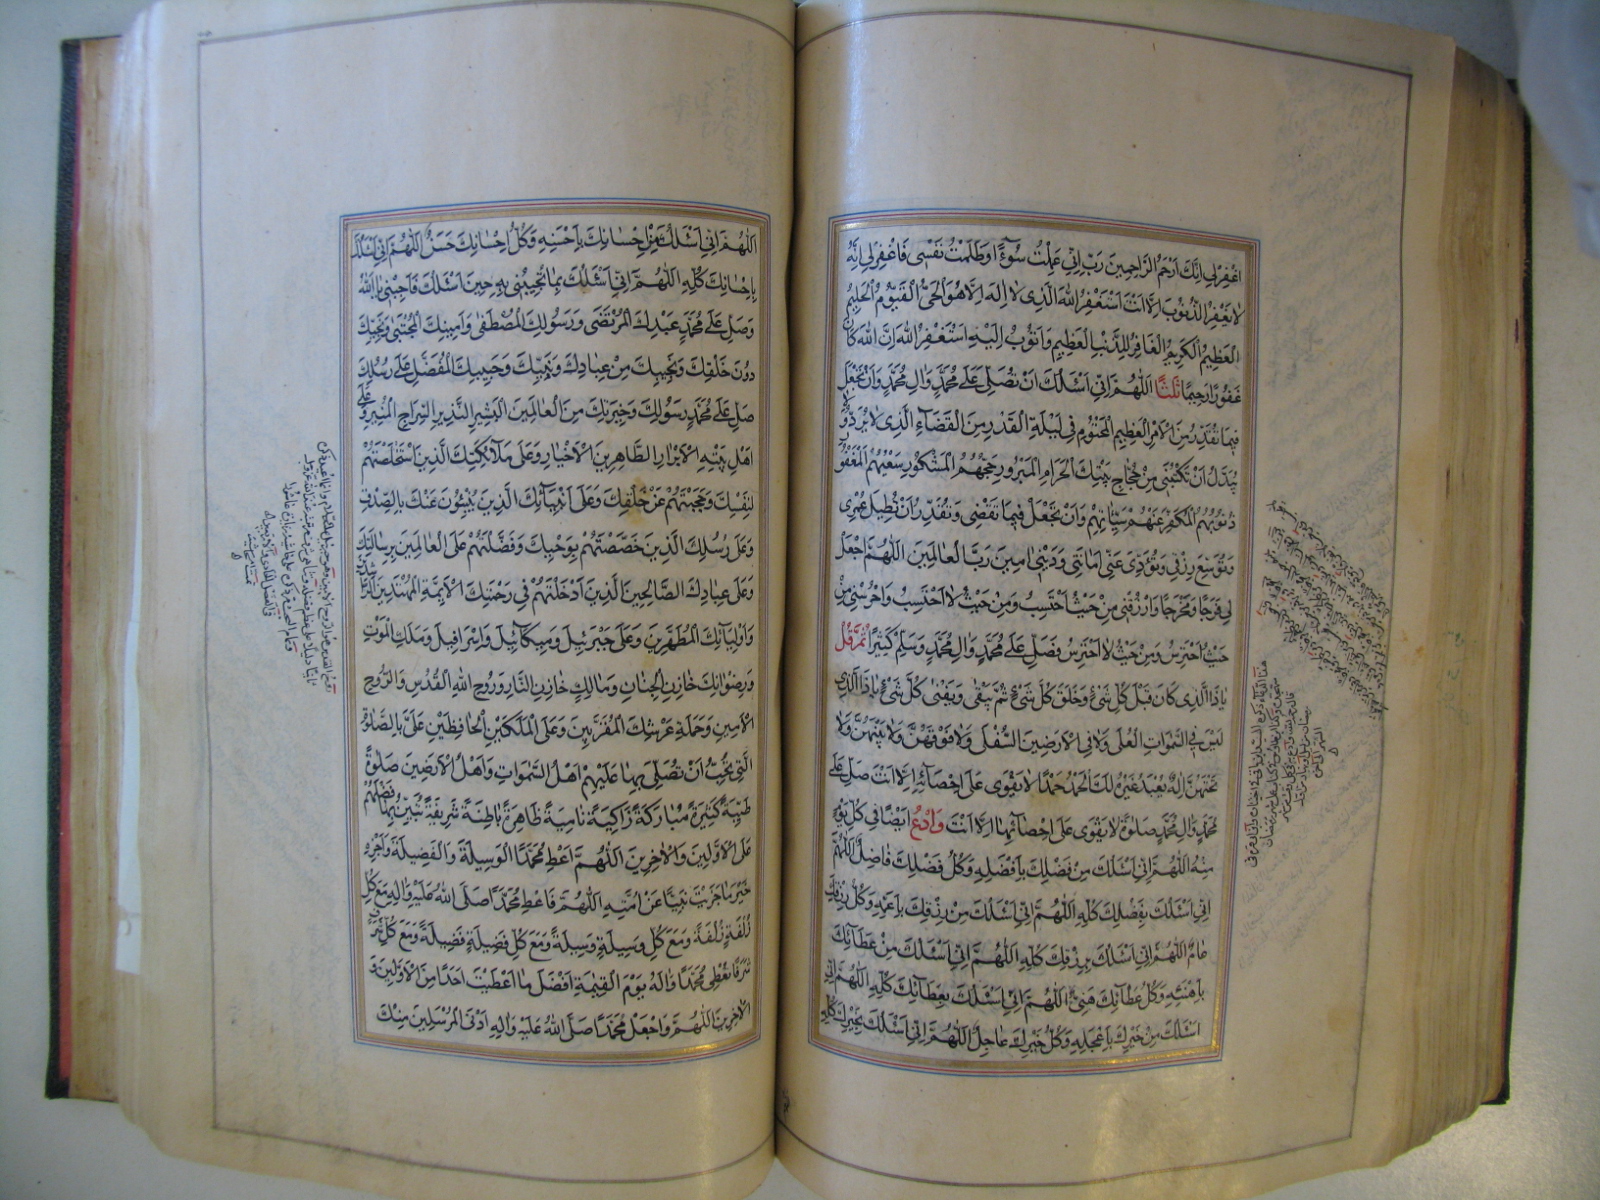 اغْفِرْ لِي اِنَّكَ اَرْحَمُ الرَّاحِمِينَ رَبِّ اِنِّي عَمِلْتُ سُوءًا وَظَلَمْتُ نَفْسِي فَاغْفِرْ لِي اِنَّهُ
لَا يَغْفِرُ الذُّنُوبَ اِلَّا اَنْتَ اَسْتَغْفِرُ اللهَ الَّذِي لَا اِلٰهَ اِلَّا هُوَ الْحَيُّ الْقَيُّومُ الْحَلِيمُ
الْعَظِيمُ الْكَرِيمُ الْغَافِرُ لِلذَّنْبِ الْعَظِيمِ وَاَتُوبُ اِلَيْهِ اَسْتَغْفِرُ اللهَ اِنَّ اللهَ كَانَ
غَفُورًا رَحِيمًا ثَلَثًا اَللّٰهُمَّ اِنِّي اَسْئَلُكَ اَنْ تُصَلِّيَ عَلٰى مُحَمَّدٍ وَالِ مُحَمَّدٍ وَاَنْ تَجْعَلَ
فِيمَا تُقَدِّرُ مِنَ الْاَمْرِ الْعَظِيمِ الْمَحْتُومِ فِي لَيْلَةِ الْقَدْرِ مِنَ الْقَضَاءِ الَّذِي لَا يُرَدُّ وَلَا
يُبَدَّلُ اَنْ تَكْتُبَنِي مِنْ حُجَّاجِ بَيْتِكَ الْحَرَامِ الْمَبْرُورِ حَجُّهُمُ الْمَشْكُورِ سَعْيُهُمُ الْمَغْفُورِ
ذُنُوبُهُمُ الْمُكَفَّرِ عَنْهُمْ سَيِّئَاتُهُمْ وَاَنْ تَجْعَلَ فِيمَا تَقْضِي وَتُقَدِّرُ اَنْ تُطِيلَ عُمْرِي
وَتُوَسِّعَ رِزْقِي وَتُؤَدِّيَ عَنِّي اَمَانَتِي وَدَيْنِي اٰمِينَ رَبَّ الْعَالَمِينَ اَللّٰهُمَّ اجْعَلْ
لِي فَرَجًا وَمَخْرَجًا وَارْزُقْنِي مِنْ حَيْثُ اَحْتَسِبُ وَمِنْ حَيْثُ لَا اَحْتَسِبُ وَاحْرُسْنِي مِنْ
حَيْثُ اَحْتَرِسُ وَمِنْ حَيْثُ لَا اَحْتَرِسُ فَصَلِّ عَلٰى مُحَمَّدٍ وَالِ مُحَمَّدٍ وَسَلِّمْ كَثِيرًا ثُمَّ قُلْ
يَا ذَا الَّذِي كَانَ قَبْلَ كُلِّ شَيْءٍ وَخَلَقَ كُلَّ شَيْءٍ ثُمَّ يَبْقٰى وَيَفْنٰى كُلُّ شَيْءٍ يَا ذَا الَّذِي
لَيْسَ فِي السَّمٰوَاتِ الْعُلٰى وَلَا فِي الْاَرَضِينَ السُّفْلٰى وَلَا فَوْقَهُنَّ وَلَا بَيْنَهُنَّ وَلَا
تَحْتَهُنَّ اِلٰهٌ يُعْبَدُ غَيْرُهُ لَكَ الْحَمْدُ حَمْدًا لَا يَقْوٰى عَلٰى اِحْصَائِهِ اِلَّا اَنْتَ صَلِّ عَلٰى
مُحَمَّدٍ وَالِ مُحَمَّدٍ صَلٰوةً لَا يَقْوٰى عَلٰى اِحْصَائِهَا اِلَّا اَنْتَ وَادْعُ اَيْضًا فِي كُلِّ يَوْمٍ
مِنْهُ اَللّٰهُمَّ اِنِّي اَسْئَلُكَ مِنْ فَضْلِكَ بِاَفْضَلِهِ وَكُلُّ فَضْلِكَ فَاضِلٌ اَللّٰهُمَّ
اِنِّي اَسْئَلُكَ بِفَضْلِكَ كُلِّهِ اَللّٰهُمَّ اِنِّي اَسْئَلُكَ مِنْ رِزْقِكَ بِاَعَمِّهِ وَكُلُّ رِزْقِكَ
عَامٌّ اَللّٰهُمَّ اِنِّي اَسْئَلُكَ بِرِزْقِكَ كُلِّهِ اَللّٰهُمَّ اِنِّي اَسْئَلُكَ مِنْ عَطَائِكَ
بِاَهْنَئِهِ وَكُلُّ عَطَائِكَ هَنِيءٌ اَللّٰهُمَّ اِنِّي اَسْئَلُكَ بِعَطَائِكَ كُلِّهِ اَللّٰهُمَّ اِنِّي
اَسْئَلُكَ مِنْ خَيْرِكَ بِاَعْجَلِهِ وَكُلُّ خَيْرِكَ عَاجِلٌ اَللّٰهُمَّ اِنِّي اَسْئَلُكَ بِخَيْرِكَ كُلِّهِ
اَللّٰهُمَّ اِنِّي اَسْئَلُكَ مِنْ اِحْسَانِكَ بِاَحْسَنِهِ وَكُلُّ اِحْسَانِكَ حَسَنٌ اَللّٰهُمَّ اِنِّي اَسْئَلُكَ
بِاِحْسَانِكَ كُلِّهِ اَللّٰهُمَّ اِنِّي اَسْئَلُكَ بِمَا تُجِيبُنِي بِهِ حِينَ اَسْئَلُكَ فَاَجِبْنِي يَا اَللهُ
وَصَلِّ عَلٰى مُحَمَّدٍ عَبْدِكَ الْمُرْتَضٰى وَرَسُولِكَ الْمُصْطَفٰى وَاَمِينِكَ الْمُجْتَبٰى وَنَجِيِّكَ
دُونَ خَلْقِكَ وَنَجِيبِكَ مِنْ عِبَادِكَ وَنَبِيِّكَ وَحَبِيبِكَ الْمُفَضَّلِ عَلٰى رُسُلِكَ
صَلِّ عَلٰى مُحَمَّدٍ رَسُولِكَ وَخِيَرَتِكَ مِنَ الْعَالَمِينَ الْبَشِيرِ النَّذِيرِ السِّرَاجِ الْمُنِيرِ وَعَلٰى
اَهْلِ بَيْتِهِ الْاَبْرَارِ الطَّاهِرِينَ الْاَخْيَارِ وَعَلٰى مَلٰائِكَتِكَ الَّذِينَ اسْتَخْلَصْتَهُمْ
لِنَفْسِكَ وَحَجَبْتَهُمْ عَنْ خَلْقِكَ وَعَلٰى اَنْبِيَائِكَ الَّذِينَ يُنْبِئُونَ عَنْكَ بِالصِّدْقِ
وَعَلٰى رُسُلِكَ الَّذِينَ خَصَصْتَهُمْ بِوَحْيِكَ وَفَضَّلْتَهُمْ عَلَى الْعَالَمِينَ بِرِسَالَتِكَ
وَعَلٰى عِبَادِكَ الصَّالِحِينَ الَّذِينَ اَدْخَلْتَهُمْ فِي رَحْمَتِكَ الْاَئِمَّةِ الْمُهْتَدِينَ الرَّاشِدِينَ
وَاَوْلِيَائِكَ الْمُطَهَّرِينَ وَعَلٰى جَبْرَئِيلَ وَمِيكَائِيلَ وَاِسْرَافِيلَ وَمَلَكِ الْمَوْتِ
وَرِضْوَانِكَ خَازِنِ الْجِنَانِ وَمَالِكٍ خَازِنِ النَّارِ وَرُوحِ اللهِ الْقُدُسِ وَالرُّوحِ
الْاَمِينِ وَحَمَلَةِ عَرْشِكَ الْمُقَرَّبِينَ وَعَلَى الْمَلَكَيْنِ الْحَافِظَيْنِ عَلَيَّ بِالصَّلٰوةِ
الَّتِي تُحِبُّ اَنْ تُصَلِّيَ بِهَا عَلَيْهِمْ اَهْلُ السَّمٰوَاتِ وَاَهْلُ الْاَرَضِينَ صَلٰوةً
طَيِّبَةً كَثِيرَةً مُبَارَكَةً زَاكِيَةً نَامِيَةً ظَاهِرَةً بَاطِنَةً شَرِيفَةً تُبَيِّنُ بِهَا فَضْلَهُمْ
عَلَى الْاَوَّلِينَ وَالْاٰخِرِينَ اَللّٰهُمَّ اَعْطِ مُحَمَّدًا الْوَسِيلَةَ وَالْفَضِيلَةَ وَاَجْزِهِ
خَيْرَ مَا جَزَيْتَ نَبِيًّا عَنْ اُمَّتِهِ اَللّٰهُمَّ فَاَعْطِ مُحَمَّدًا صَلَّى اللهُ عَلَيْهِ وَاٰلِهِ مَعَ كُلِّ
زُلْفَةٍ زُلْفَةً وَمَعَ كُلِّ وَسِيلَةٍ وَسِيلَةً وَمَعَ كُلِّ فَضِيلَةٍ فَضِيلَةً وَمَعَ كُلِّ شَرَفٍ
شَرَفًا تُعْطِي مُحَمَّدًا وَاٰلَهُ يَوْمَ الْقِيٰمَةِ اَفْضَلَ مَا اَعْطَيْتَ اَحَدًا مِنَ الْاَوَّلِينَ وَ
الْاٰخِرِينَ اَللّٰهُمَّ وَاجْعَلْ مُحَمَّدًا صَلَّى اللهُ عَلَيْهِ وَاٰلِهِ اَدْنَى الْمُرْسَلِينَ مِنْكَ